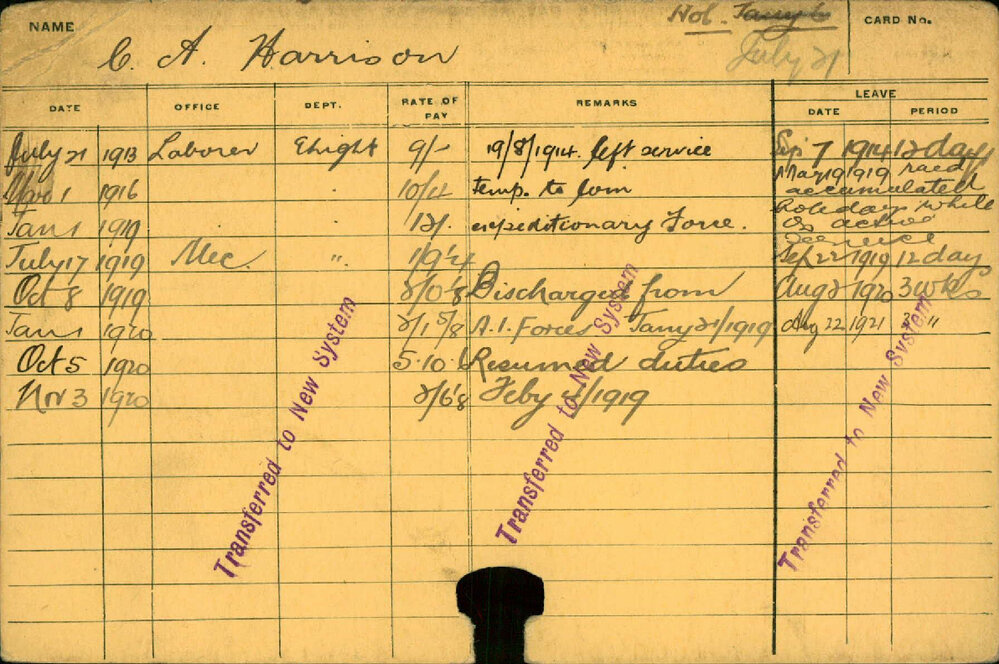 NAME
C. A. Harrison
Hol.
July 21
CARD No.
DATE OFFICE DEPT. RATE OF PAY REMARKS LEAVE
DATE PERIOD
July 21 1913 Laborer Elright 9/- 19/8/1914. left service Sep 7 1914 12 days
Nov 1 1916 " 10/4 temp. to join Mar 19 1919 raed
accumulated
Jan 1 1919 " 12/. expeditionary Force. holidays while
on active
service
July 17 1919 Mec. " Sep 22 1919 12 day
Oct 8 1919 Discharged from Aug 2 1920 3 wks
Jan 1 1920 A.I. Forces Jany 21/1919 Aug 22 1921 3 "
Oct 5 1920 5.10. Resumed duties
Nov 3 1920 Feby /1919
Transferred to New System
Transferred to New System
Transferred to New System